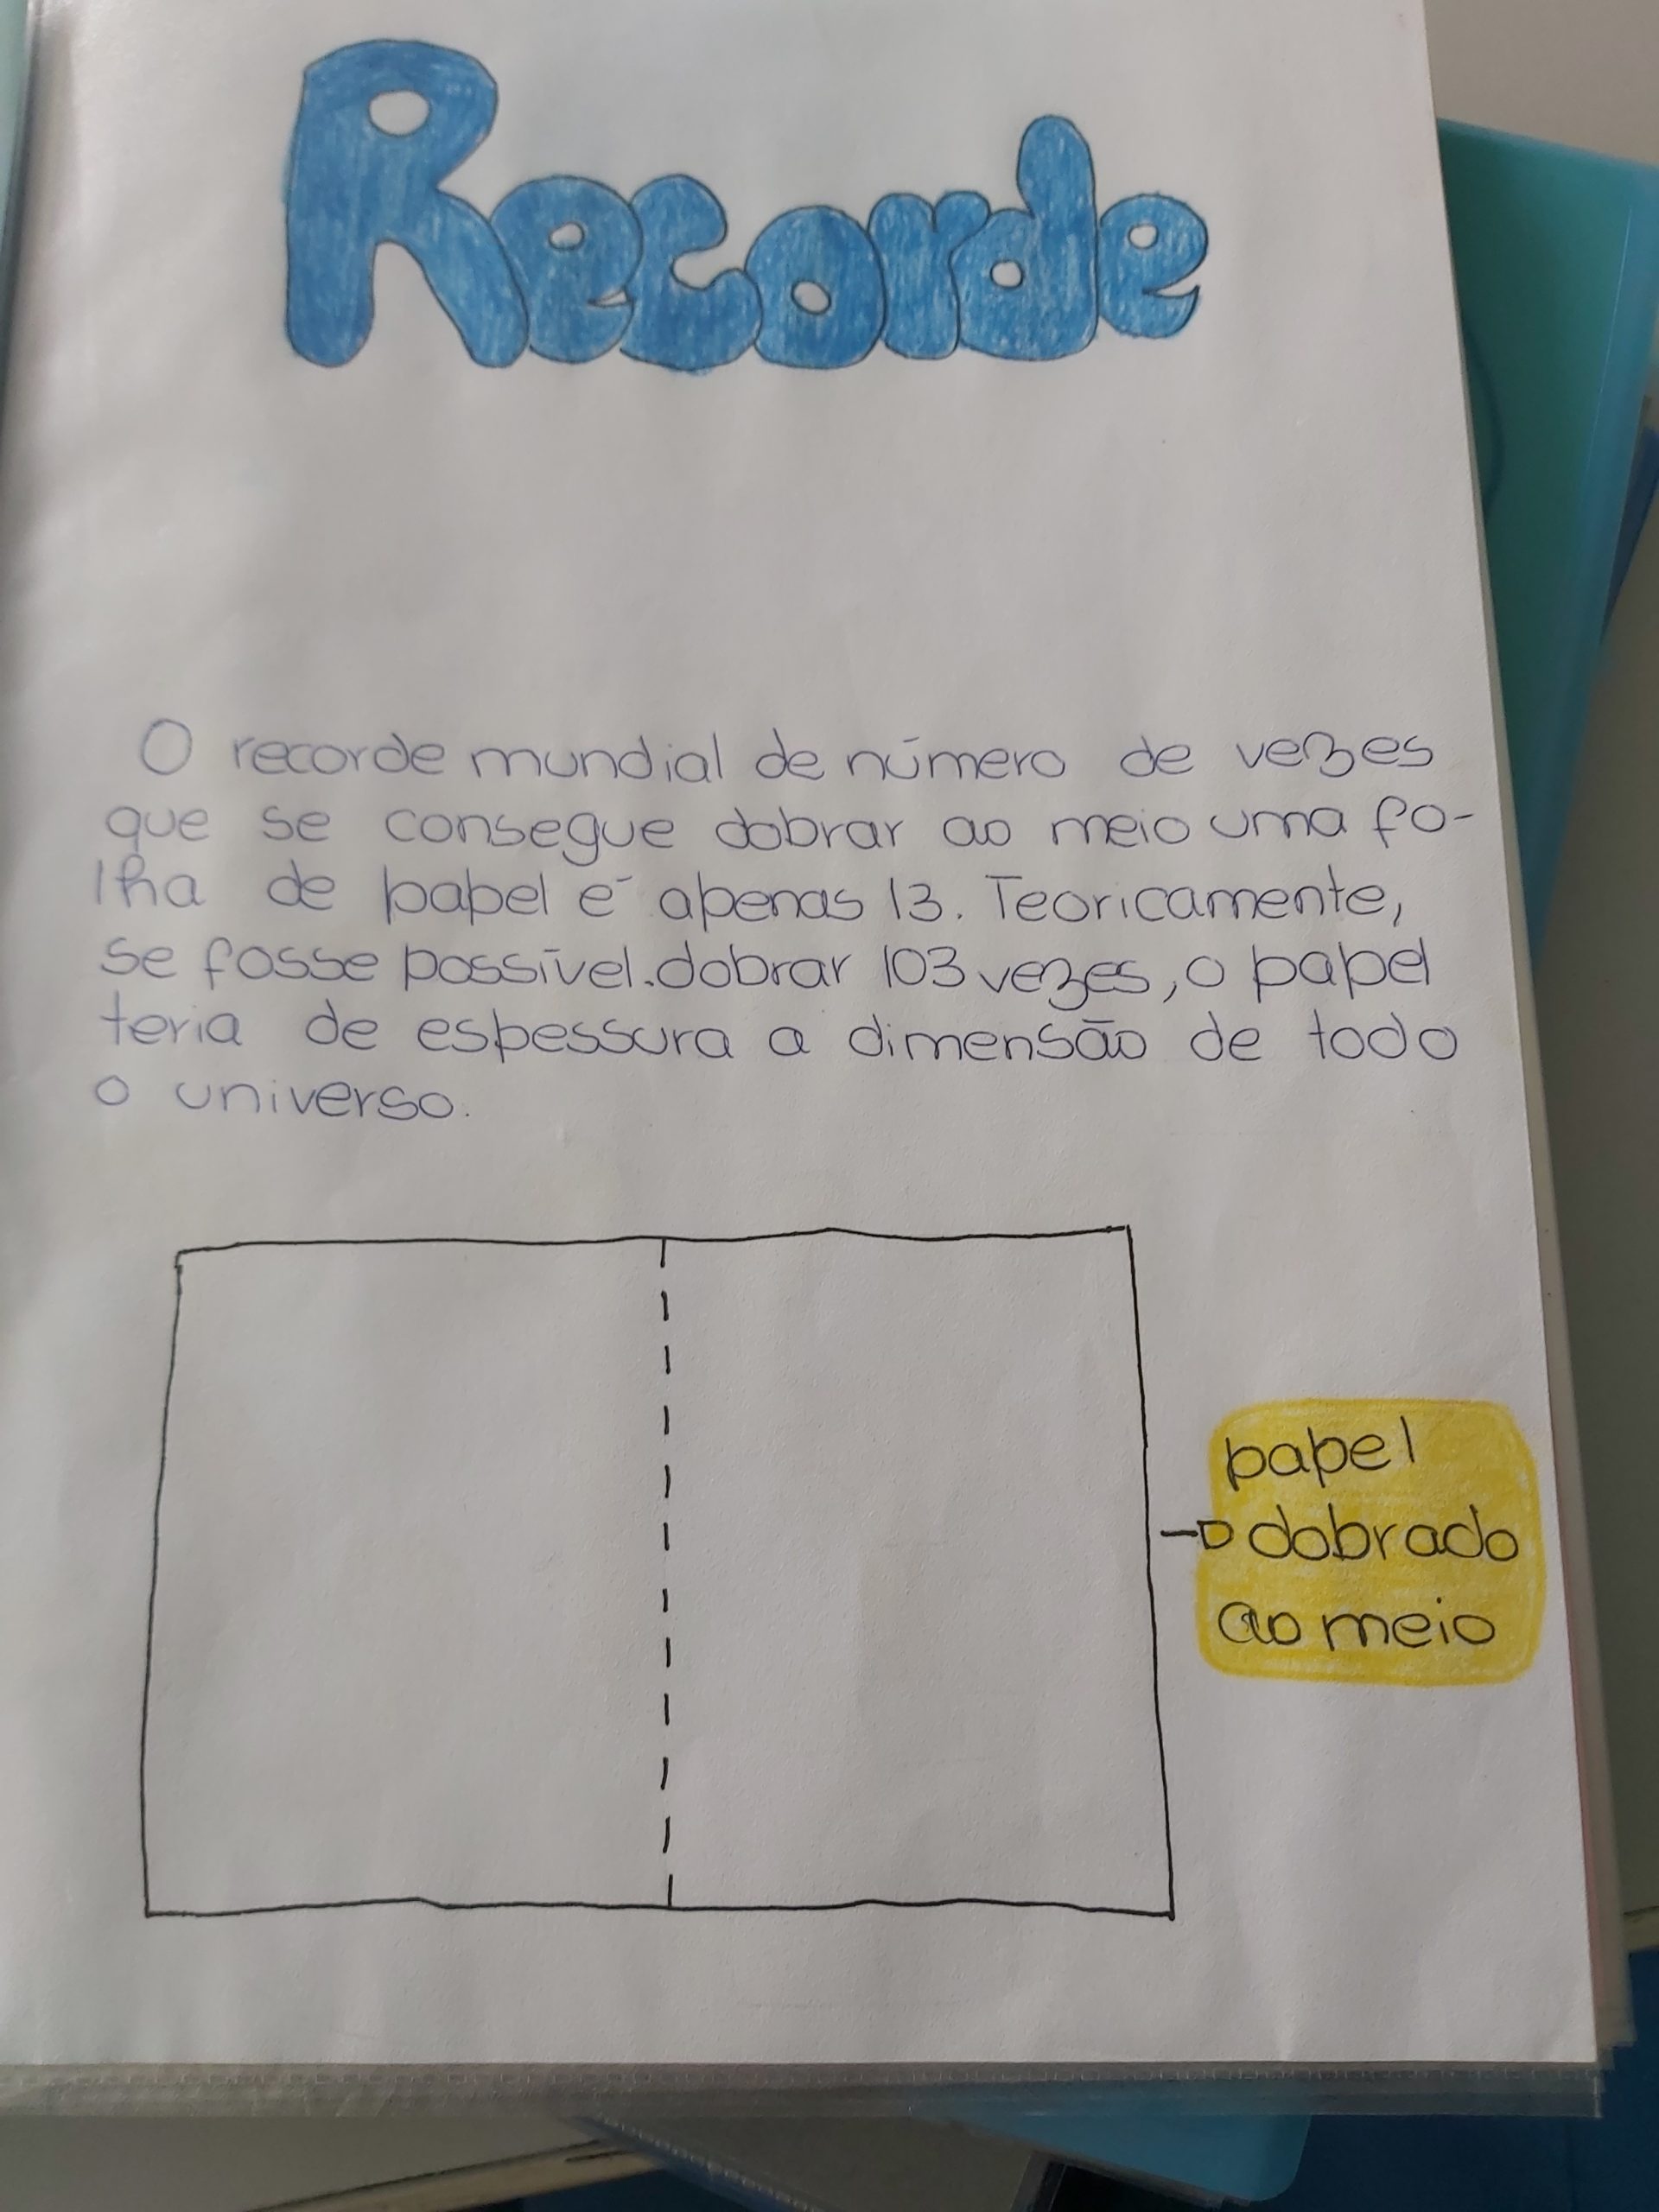 Recorde
O recorde mundial de número de vezes
que se consegue dobrar ao meio uma fo-
lha de papel é apenas 13. Teoricamente,
se fosse possível.dobrar 103 vezes, o papel
teria de espessura a dimensão de todo
o universo.
papel
dobrado
ao meio